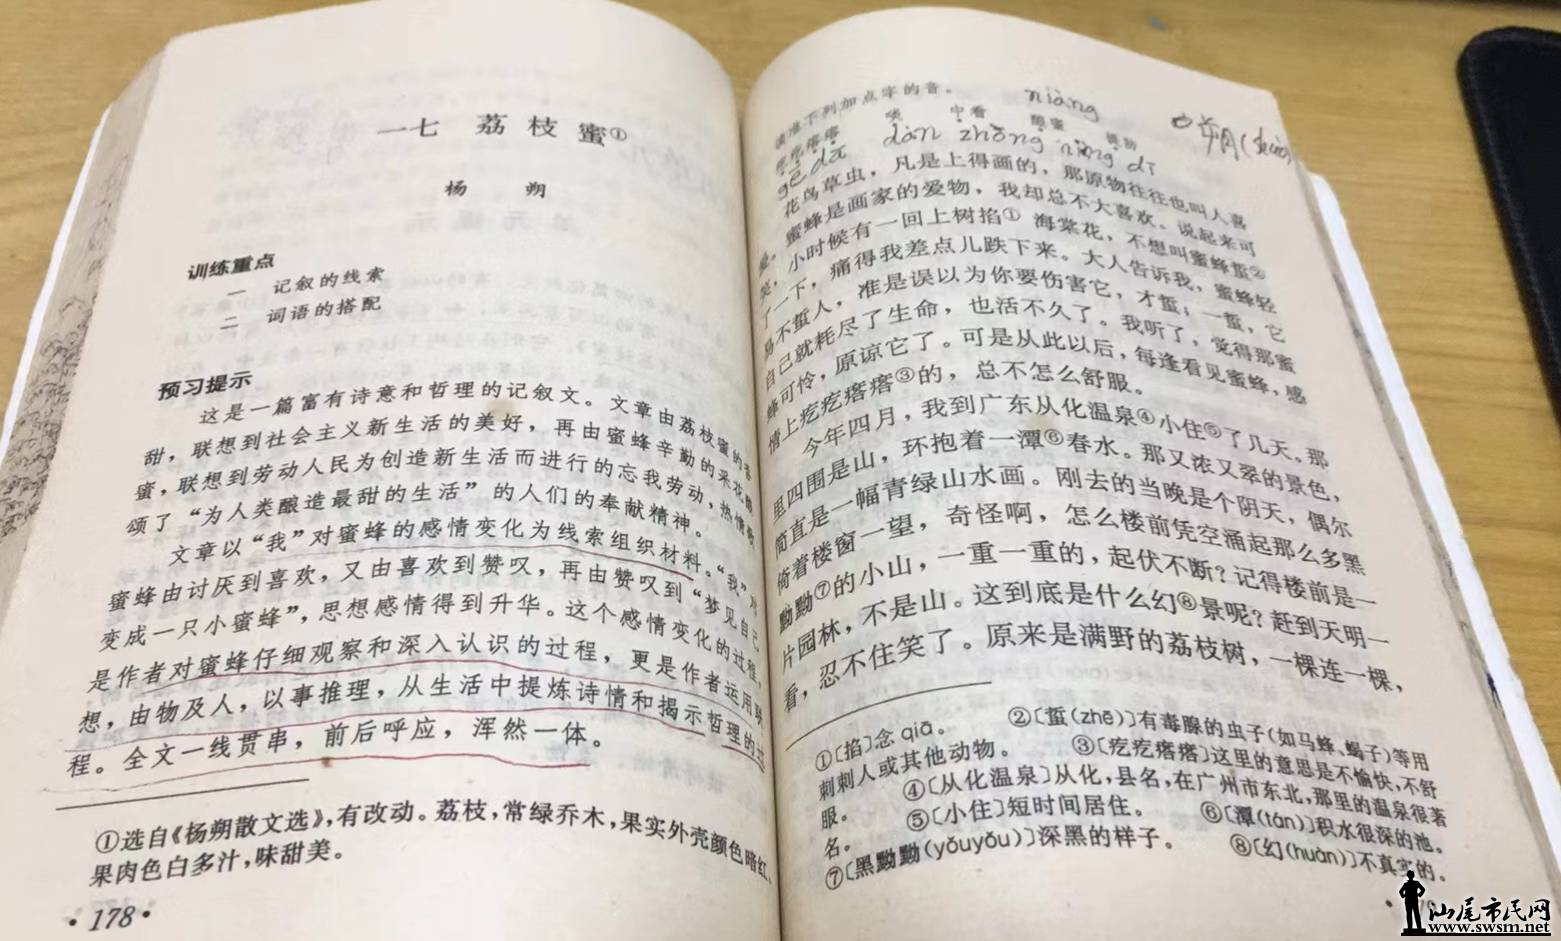 一七 荔枝蜜①
杨 朔
训练重点
一 记叙的线索
二 词语的搭配
预习提示
这是一篇富有诗意和哲理的记叙文。文章由荔枝蜜的香
甜，联想到社会主义新生活的美好，再由蜜蜂辛勤的采花酿
蜜，联想到劳动人民为创造新生活而进行的忘我劳动，热情歌
颂了“为人类酿造最甜的生活”的人们的奉献精神。
文章以“我”对蜜蜂的感情变化为线索组织材料。“我”对
蜜蜂由讨厌到喜欢，又由喜欢到赞叹，再由赞叹到“梦见自己
变成一只小蜜蜂”，思想感情得到升华。这个感情变化的过程，
是作者对蜜蜂仔细观察和深入认识的过程，更是作者运用联
想，由物及人，以事推理，从生活中提炼诗情和揭示哲理的过
程。全文一线贯串，前后呼应，浑然一体。
①选自《杨朔散文选》，有改动。荔枝，常绿乔木，果实外壳颜色暗红，
果肉色白多汁，味甜美。
·178·
读准下列加点字的音。
niàng
疙疙瘩瘩 啖 中看 酿蜜 提防
gē dā dàn zhōng niàng dī
朔
花鸟草虫，凡是上得画的，那原物往往也叫人喜
爱。蜜蜂是画家的爱物，我却总不大喜欢。说起来可
笑，小时候有一回上树掐①海棠花，不想叫蜜蜂蜇②
了一下，痛得我差点儿跌下来。大人告诉我，蜜蜂轻
易不蜇人，准是误以为你要伤害它，才蜇；一蜇，它
自己就耗尽了生命，也活不久了。我听了，觉得那蜜
蜂可怜，原谅它了。可是从此以后，每逢看见蜜蜂，感
情上疙疙瘩瘩③的，总不怎么舒服。
今年四月，我到广东从化温泉④小住⑤了几天。那
里四围是山，环抱着一潭⑥春水。那又浓又翠的景色，
简直是一幅青绿山水画。刚去的当晚是个阴天，偶尔
倚着楼窗一望，奇怪啊，怎么楼前凭空涌起那么多黑
黝黝⑦的小山，一重一重的，起伏不断？记得楼前是一
片园林，不是山。这到底是什么幻⑧景呢？赶到天明一
看，忍不住笑了。原来是满野的荔枝树，一棵连一棵，
①〔掐〕念 qiā。 ②〔蜇(zhē)〕有毒腺的虫子(如马蜂、蝎子)等用
刺刺人或其他动物。 ③〔疙疙瘩瘩〕这里的意思是不愉快，不舒
服。 ④〔从化温泉〕从化，县名，在广州市东北，那里的温泉很著
名。 ⑤〔小住〕短时间居住。 ⑥〔潭(tán)〕积水很深的池。
⑦〔黑黝黝(yǒuyǒu)〕深黑的样子。 ⑧〔幻(huàn)〕不真实的。
汕尾市民网
www.swsm.net